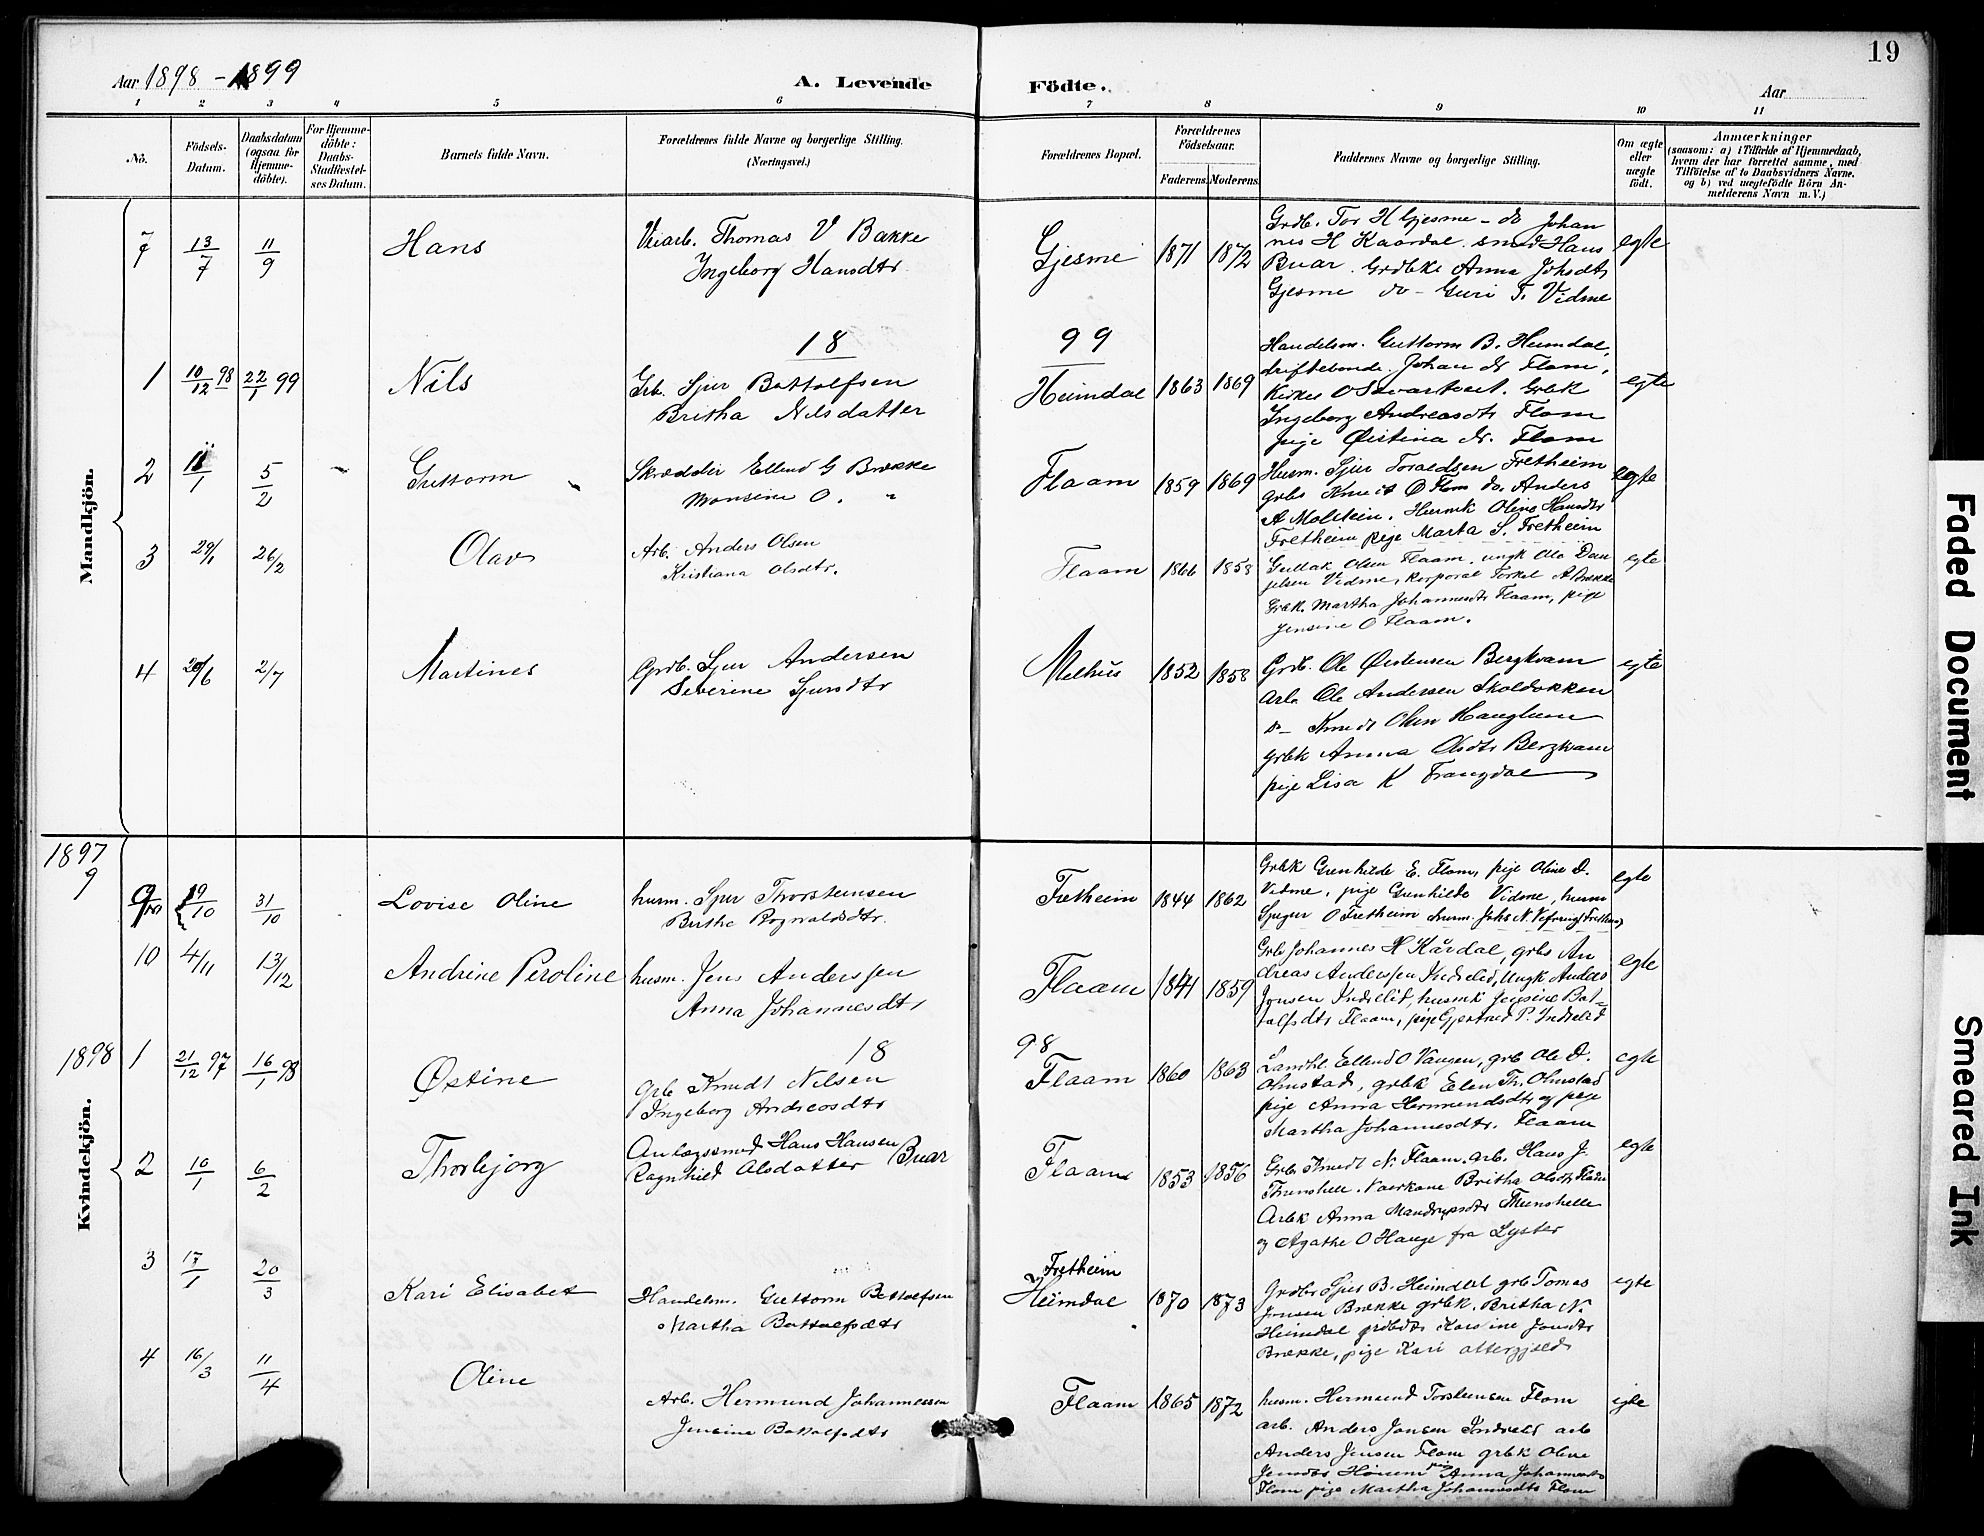 19
Aar 1898 - 1899
A. Levende
Födte.
Aar
1 2 3 4 5 6 7 8 9 10 11
No.
Födsels-Datum.
Daabsdatum (ogsaa for Hjemme-döbte).
For Hjemme-döbte: Daabs-Stadfæstel-ses Datum.
Barnets fulde Navn.
Forældrenes fulde Navne og borgerlige Stilling. (Næringsvei.)
Forældrenes Bopæl.
Forældrenes Födselsaar.
Faderens. Moderens.
Faddernes Navne og borgerlige Stilling.
Om ægte eller uægte födt.
Anmærkninger
(saasom: a) i Tilfælde af Hjemmedaab,
hvem der har forrettet samme, med
Tilföielse af to Daabsvidners Navne.
og b) ved uægtefödte Börn An-
melderens Navn m. V.)
Mandkjön.
7 13/7 11/9 Hans
Veiarb. Thomas V Bakke
Ingeborg Hansdtr
Gjesme 1871 1872
Grdb. Tor H Gjesme - do Johan
nes H Kaardal. smed Hans
Buar. Grdbke Anna Johsdtr
Gjesme do - Guri T. Vidme
egte
18 99
1 10/12 98 22/1 99 Nils
Grb. Sjur Bottolfsen
Britha Nilsdatter
Heimdal 1863 1869
Handelsm. Guttorm B. Heimdal,
driftebonde. Johan Flom,
Kirkes O Grbk
Ingeborg Andreasdtr Flom
pige Øistina Flom
egte
2 1 5/2 Guttorm
Skrædder Ellend G Brekke
Monsine O. "
Flaam 1859 1869
Husm. Sjur Toraldsen Fretheim
grbs Knut O Flom do. Anders
A Molstein. Husmk Oline Hansdtr
Fretheim pige Marta S. Fretheim
egte
3 29/1 26/2 Olav
Arb. Anders Olsen
Kristiana Olsdtr.
Flaam 1866 1858
Gullak Olsen Flaam, ungk Ole Dan
jelsen Vidme, korporal Torkel A Brekke
Grbk. Martha Johannesdtr Flaam, pige
Jensine O Flaam.
egte
4 20/6 2/7 Martines
Grdb. Sjur Andersen
Severine Sjursdtr
Melhus 1852 1858
Grdb. Ole Øistensen Bergkvam
Arb. Ole Andersen Skoldokken
do - Knudt Olsen Haugheim
grbk Anna Olsdtr Bergkvam
pige Lisa K Frangdal
egte
Kvindekjön.
1897
9
9 19/10 31/10 Lovise Oline
husm. Sjur Thorsteinsen
Brithe Rognaldsdtr.
Fretheim 1844 1862
Grbk Gunhilde E. Flom, pige Oline D.
Vidme, pige Gunhilde Vidme, husm
O Fretheim husm. Johs N. Fretheim
egte
10 4/11 13/12 Andrine Peroline
husm. Jens Anderssen
Anna Johannesdtr
Flaam 1841 1859
Grb Johannes H Kårdal, grbs An
dreas Anderssen Indrelid, Ungk Anders
Jonsen Indrelid, husmk Jensine Bot-
tolfsdtr Flaam, pige Gjertrud P. Indrelid
egte
1898
18 98
1 21/12 97 16/1 98 Østine
Grb Knudt Nilsen
Ingeborg Andreasdtr
Flaam 1860 1863
Landhl. Ellend O Vangen, grb Ole D.
Ohnstad, grbk Elen Th. Ohnstad
pige Anna Hermundsdtr og pige
Martha Johannesdtr. Flaam
egte
2 10/1 6/2 Thorbjørg
Anlægssmed Hans Hansen Buar
Ragnhild Olsdatter
Flaam 1853 1856
Grb Knudt N. Flaam. arb. Hans J.
Thunshelle. Britha Olsdtr Flaam
Arbk Anna Mandrupsdtr Thunshelle
og Agathe O Hauge fra Lyster
egte
3 17/1 20/3 Kari Elisabet
Handelsm. Guttorm Bottolfsen
Martha Bottolfsdtr
Fretheim
Heimdal 1870 1873
Grdbr Sjur B. Heimdal grb Tomas
Jonsen Brekke grbk. Britha N.
Heimdal Jonsdtr
Brekke, pige Kari
egte
4 16/3 11/4 Oline
Arb. Hermund Johannessen
Jensine Bottolfsdtr
Flaam 1865 1872
husm. Hermund Torsteinsen Flom
arb. Anders Jonsen Indrelid arb
Anders Jensen Flom grbk Oline
Jensdtr pige Anna Johannesdtr
Flom pige Martha Johannesdtr Flom
egte
Faded Document
Smeared Ink